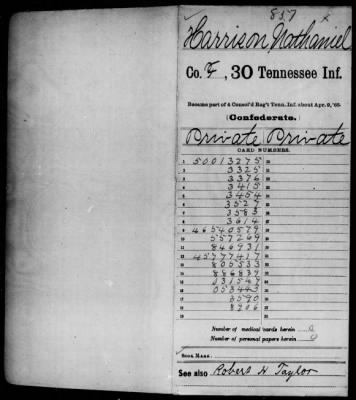 837 x
Harrison, Nathaniel
Co. F, 30 Tennessee Inf.
Became part of 4 Consol'd Reg't Tenn. Inf. about Apr. 9, '65.
(Confederate.)
Private Private
CARD NUMBERS.
1 50013275
2 3325
3 3376
4 3415
5 3454
6 3527
7 3583
8 3614
9 46540579
10 557269
11 846931
12 45777417
13 805533
14 886839
15 931547
16 053443
17 3590
18 8906
19
Number of medical cards herein 0
Number of personal papers herein 0
BOOK MARK:
See also Robert H Taylor